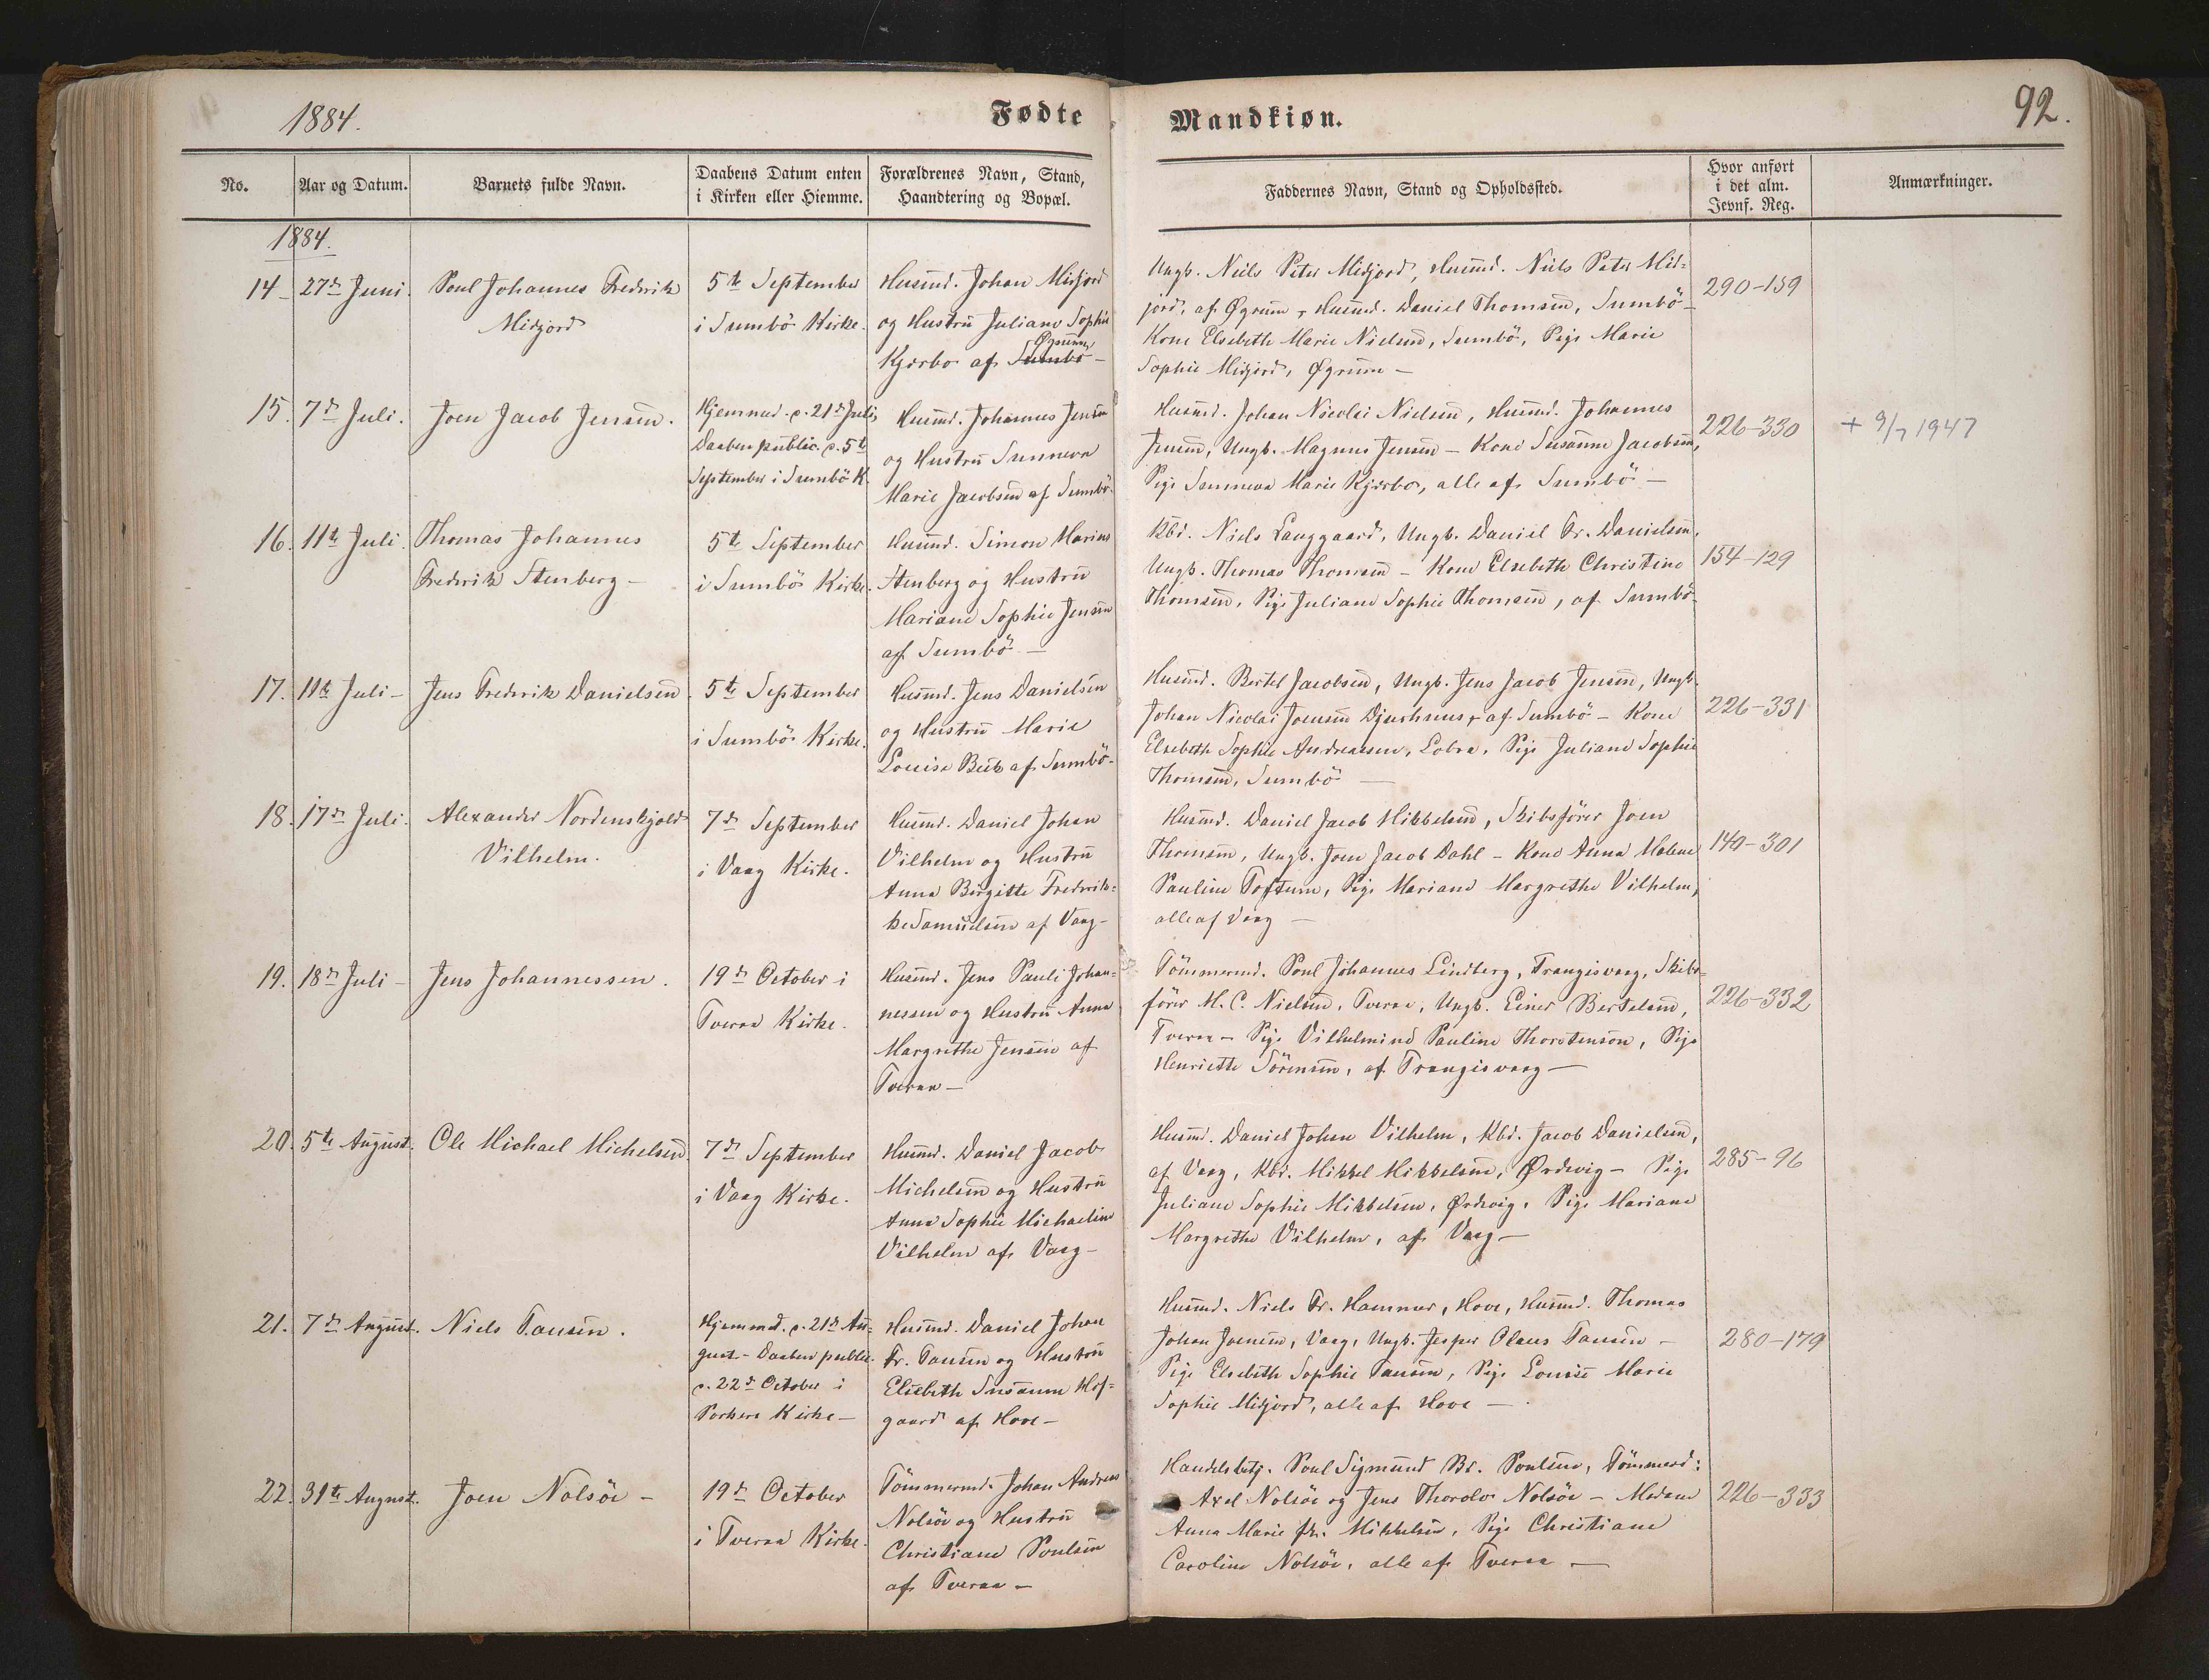 1884.
Fødte
Mandkiøn.
92.
No.
Aar og Datum.
Barnets fulde Navn.
Daabens Datum enten
i Kirken eller Hiemme.
Forældrenes Navn, Stand,
Haandtering og Bopæl.
Faddernes Navn, Stand og Opholdssted.
Hvor anført
i det alm.
Jevnf. Reg.
Anmærkninger.
1884.
14 -
27de Juni.
Poul Johannes Fredrik
Midjord
5te September
i Sumbö Kirke.
Husmd. Johan Midjord
og Hustrū Juliane Sophie
Øgrum
Kjærbo af Sumbö -
Ungk. Niels Peter Midjord, Husmd. Niels Peter Mid=
jord, af Øgrum, Husmd. Daniel Thomsen, Sumbö -
Kone Elsebeth Marie Nielsen, Sumbö, Pige Marie
Sophie Midjord, Øgrum -
290-159
15.
7de Juli.
Joen Jacob Jensen.
Hjemmed. d. 21de Juli,
Daaben public. d. 5te
September i Sumbö K.
Husmd. Johannes Jensen
og Hustrū Sunneva
Marie Jacobsen af Sumbö.
Husmd. Johan Nicolai Nielsen, Husmd. Johannes
Jensen, Ungk. Magnus Jensen - Kone Susanne Jacobsen,
Pige Sunneva Marie Kjærbo, alle af Sumbö -
226-330
+ 9/7 1947
16.
11te Juli.
Thomas Johannes
Fredrik Stenberg -
5te September
i Sumbö Kirke.
Husmd. Simon Marius
Stenberg og Hustrū
Mariane Sophie Jensen
af Sumbö -
Kbd. Niels Langgaard, Ungk. Daniel Fr. Danielsen,
Ungk. Thomas Thomsen - Kone Elsebeth Christine
Thomsen, Pige Juliane Sophie Thomsen, af Sumbö -
154-129
17.
11te Juli -
Jens Fredrik Danielsen
5te September
i Sumbö Kirke.
Husmd. Jens Danielsen
og Hustrū Marie
Louise Beck af Sumbö -
Husmd. Bertel Jacobsen, Ungk. Jens Jacob Jensen, Ungk.
Johan Nicolai Joensen Djurhuus, af Sumbö - Kone
Elsebeth Sophie Andreasen, Lobra, Pige Juliane Sophie
Thomsen, Sumbö -
226-331
18.
17de Juli.
Alexander Nordenskjold
Vilhelm.
7de September
i Vaag Kirke.
Husmd. Daniel Johan
Vilhelm og Hustrū
Anna Birgitte Fredrik=
ke Samuelsen af Vaag -
Husmd. Daniel Jacob Mikkelsen, Skibsfører Joen
Thomsen, Ungk. Joen Jacob Dahl - Kone Anna Malene
Pauline Toftum, Pige Mariane Margrethe Vilhelm,
alle af Vaag -
140-301
19.
18de Juli -
Jens Johannessen.
19de October i
Tveraa Kirke.
Husmd. Jens Pauli Johan=
nessen og Hustrū Anna
Margrethe Jensen af
Tveraa -
Tömmermd. Poul Johannes Lindberg, Trangisvaag, Skibs=
förer M. C. Nielsen, Tveraa, Ungk. Einer Bertelsen,
Tveraa - Pige Vilhelmine Pauline Thorstenson, Pige
Henriette Sörensen, af Trangisvaag -
226-332
20.
5te August.
Ole Michael Michelsen.
7de September
i Vaag Kirke.
Husmd. Daniel Jacob
Michelsen og Hustrū
Anna Sophie Michaeline
Vilhelm af Vaag -
Husmd. Daniel Johan Vilhelm, Kbd. Jacob Danielsen,
af Vaag, Kbd. Mikkel Mikkelsen, Ørdevig - Pige
Juliane Sophie Mikkelsen, Ørdevig, Pige Mariane
Margrethe Vilhelm, af Vaag -
285-96
21.
7de August.
Niels Tausen.
Hjemmed. d. 21de Au=
gust - Daaben public.
d. 22de October i
Porkere Kirke -
Husmd. Daniel Johan
Fr. Tausen og Hustrū
Elsebeth Susanne Hof=
gaard af Hove -
Husmd. Niels Fr. Hammer, Hove, Husmd. Thomas
Johan Joensen, Vaag, Ungk. Jesper Olaus Tausen -
Pige Elsebeth Sophie Tausen, Pige Louise Marie
Sophie Midjord, alle af Hove -
280-179
22.
31te August.
Joen Nolsöe -
19de October
i Tveraa Kirke.
Tömmermd. Johan Andreas
Nolsöe og Hustrū
Christiane Poulsen
af Tveraa -
Handelsbetj. Poul Sigmund Br. Poulsen, Tömmermd:
Axel Nolsöe og Jens Thorolv Nolsöe - Madame
Anna Marie Fr. Mikkelsen, Pige Christiane
Caroline Nolsöe, alle af Tveraa -
226-333